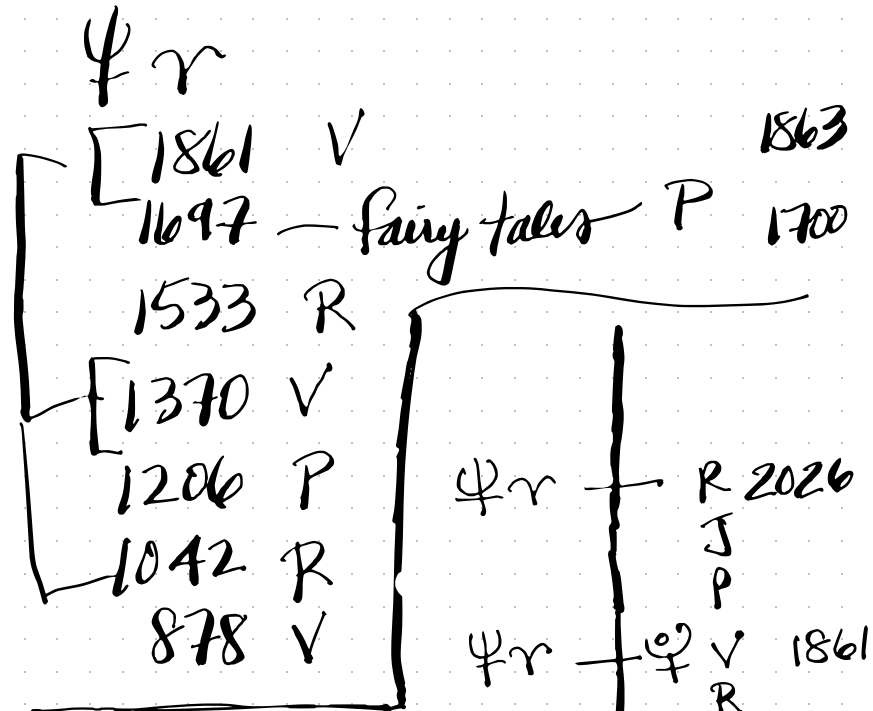 ♆ ♈
1861 V 1863
1697 — fairy tales — P 1700
1533 R
1370 V
1206 P
1042 R
878 V
♆ ♈ R 2026
J
P
♆ ♈ V 1861
R